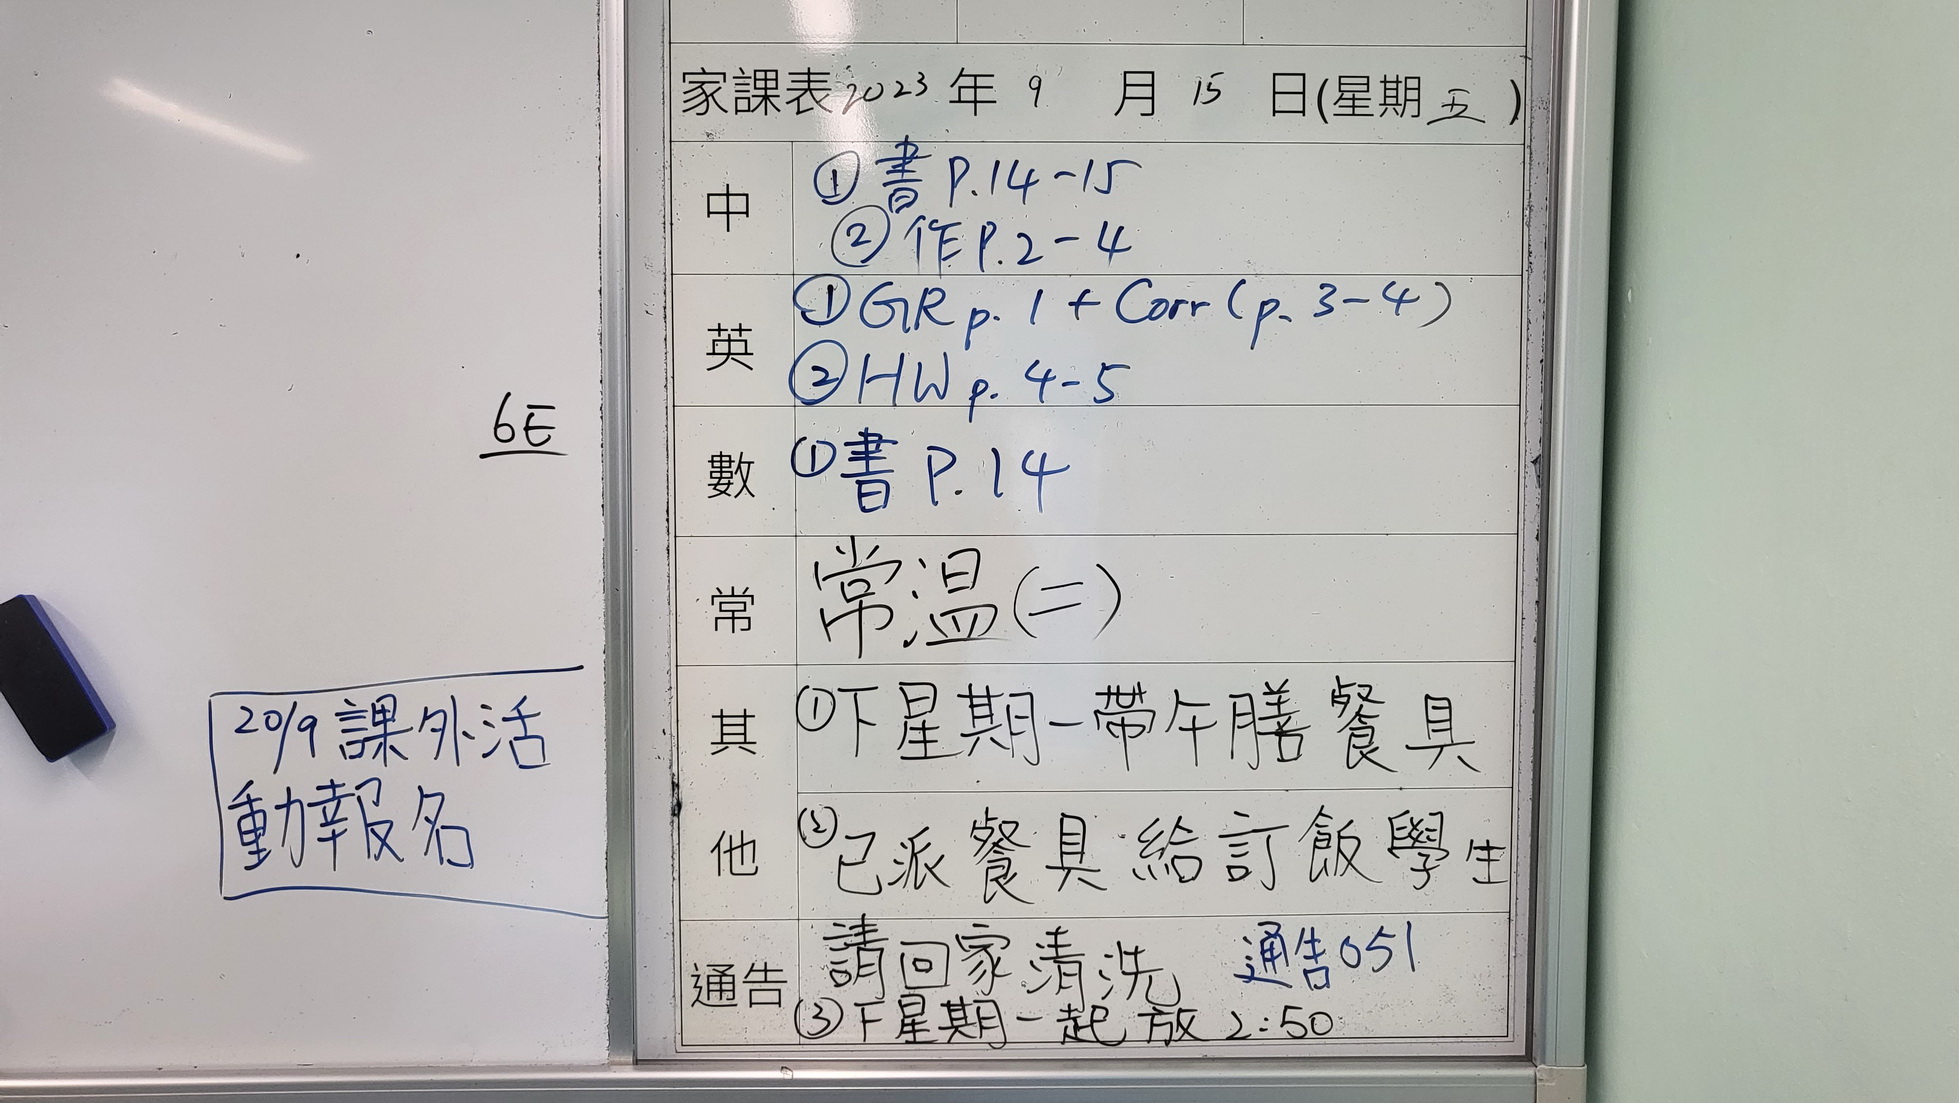 家課表 2023 年 9 月 15 日(星期五)
中
①書 P.14-15
②作 P.2-4
英
①GR p. 1 + Corr (p. 3-4)
②HW p. 4-5
數
①書 P.14
常
常温(二)
其他
①下星期一帶午膳餐具
②已派餐具給訂飯學生
通告
請回家清洗 通告051
③下星期一起放2:50
6E
20/9 課外活
動報名